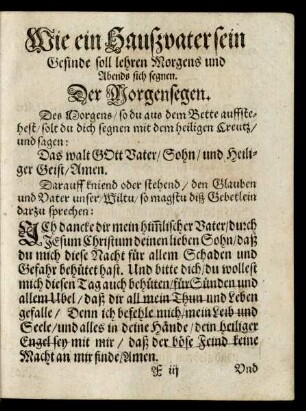 Wie ein Hauszvater sein
Gesinde soll lehren Morgens und
Abends sich segnen.
Der Morgensegen.
Des Morgens / so du aus dem Bette auffste-
hest / solt du dich segnen mit dem heiligen Kreutz /
und sagen:
Das walt GOtt Vater / Sohn / und Heili-
ger Geist / Amen.
Darauff kniend oder stehend / den Glauben
und Vater unser / Wiltu / so magstu diß Gebetlein
darzu sprechen:
ICh dancke dir mein him̃lischer Vater / durch
JEsum Christum deinen lieben Sohn / daß
du mich diese Nacht für allem Schaden und
Gefahr behütet hast. Und bitte dich / du wollest
mich diesen Tag auch behüten / für Sünden und
allem Ubel / daß dir all mein Thun und Leben
gefalle / Denn ich befehle mich / mein Leib und
Seele / und alles in deine Hände / dein heiliger
Engel sey mit mir / daß der böse Feind keine
Macht an mir finde / Amen.
Æ iij Und